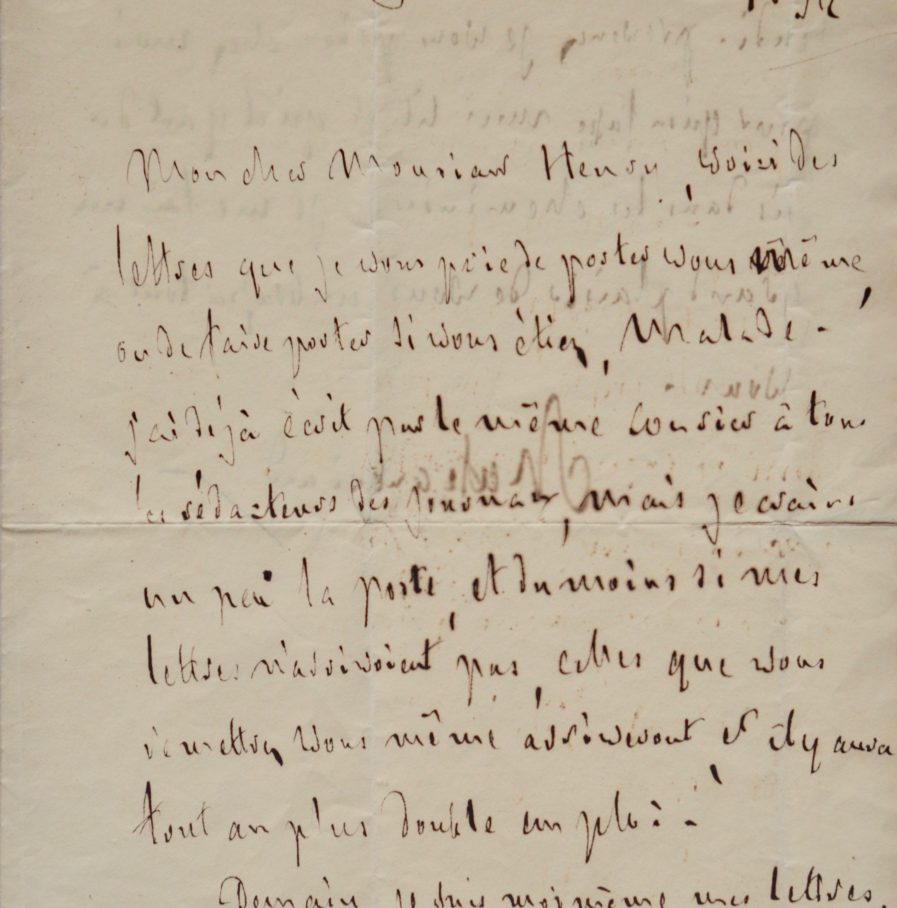 Mon cher Monsieur Henry, voici des
lettres que je vous prie de poster vous même
ou de faire poster si vous étiez malade. -
j'ai déjà écrit par le même courier à tous
les rédacteurs des journaux, mais je crains
un peu la poste, et du moins si mes
lettres n'arrivoient pas, celles que vous
remettrez vous même arriveront et il y aura
tout au plus double emploi. -
Demain je suis moi même mes lettres.